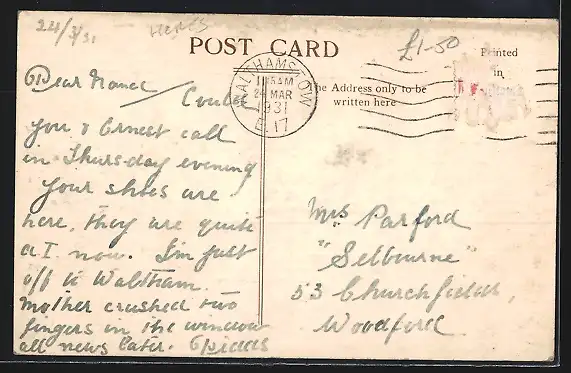 24/3/31
HERBS
POST CARD
£1-50
Printed
in
The Address only to be
written here
WALTHAMSTOW
11 15AM
24 MAR
1931
E.17
Dear
Could
you & Ernest call
in Thursday evening
your shoes are
here, they are quite
A I. now. I'm just
off to Waltham.
Mother crushed two
fingers in the window
all news later.
Mrs Parford
"Selbourne"
53 Churchfields,
Woodford